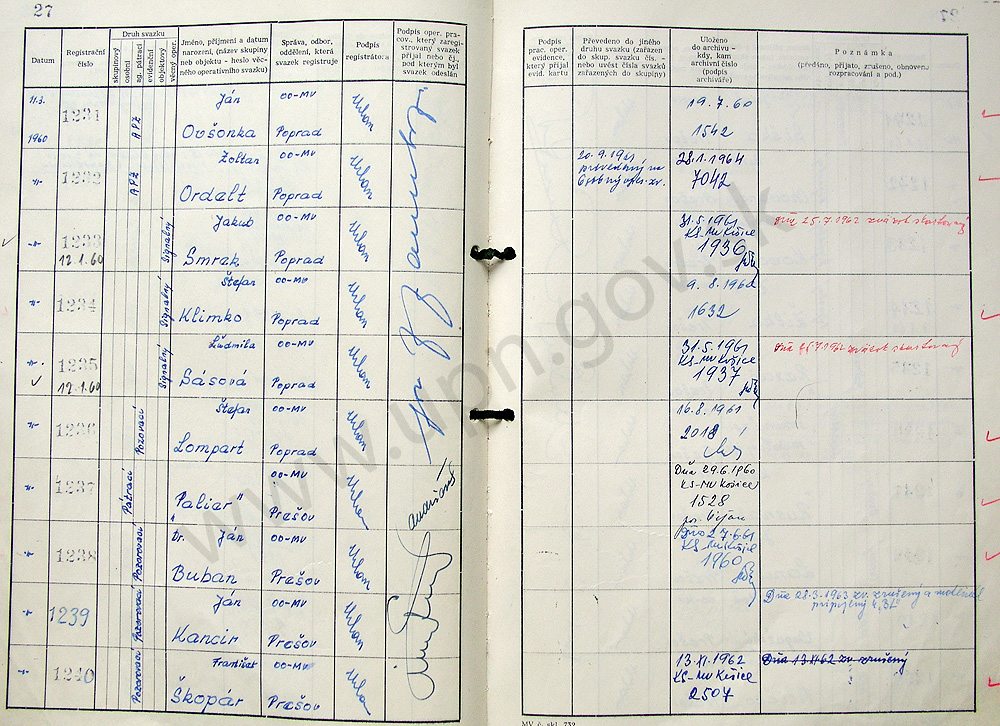 27
Datum
Registrační číslo
Druh svazku
skupinový
osobní
ag. pátrací
evidenční
objektový
věcný oper.
Jméno, příjmení a datum narození, (název skupiny neb objektu - heslo věcného operativního svazku)
Správa, odbor, oddělení, která svazek registruje
Podpis registrátora
Podpis oper. prac., který zaregistrovaný svazek přijal nebo čj., pod kterým byl svazek odeslán
Podpis prac. oper. evidence, který přijal evid. kartu
Převedeno do jiného druhu svazku (zařazen do skup. svazku čís. - nebo uvést čísla svazků zařazených do skupiny)
Uloženo do archivu - kdy, kam archivní číslo (podpis archiváře)
Poznámka
(předáno, přijato, zrušeno, obnoveno rozpracování a pod.)
11.3. 1960 1231 APZ Ján Ovšonka OO-MV Poprad Urban 19.7.60 1542
-"- 1232 APZ Zoltan Ordelt OO-MV Poprad Urban 20.9.1961 28.1.1964 7042
-"- 1233 12.1.60 Signalný Jakub Smrek OO-MV Poprad Urban 31.5.1961 KS-MV Košice 1936 Dňa 25.7.1962 zväzok skartovaný
-"- 1234 Signalný Štefan Klimko OO-MV Poprad Urban 9.8.1960 1632
-"- 1235 12.1.60 Signalný Ľudmila Sásová OO-MV Poprad Urban 31.5.1961 KS-MV Košice 1937 Dňa 25.7.1962 zväzok skartovaný
-"- 1236 Pozorovací Štefan Lompart OO-MV Poprad Urban 16.8.1961 2018
-"- 1237 Pátrací "Paliar" OO-MV Prešov Urban Dňa 29.6.1960 KS-MV Košice 1528
-"- 1238 Pozorovací Dr. Ján Buban OO-MV Prešov Urban Dňa 27.6.61 KS MV Košice 1960
-"- 1239 Pozorovací Ján Kancir OO-MV Prešov Urban Dňa 28.3.1963 zv. zrušený a
-"- 1240 Pozorovací František Škopár OO-MV Prešov Urban 13.XI.1962 KS-MV Košice 2507 Dňa 13.XI.62 zv. zrušený
www.upn.gov.sk